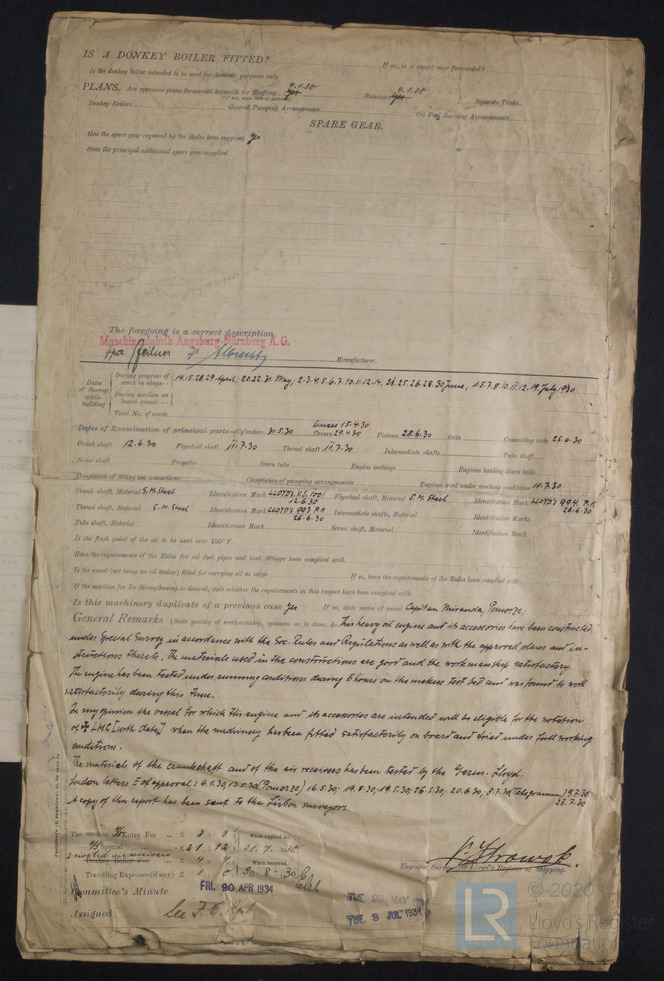 IS A DONKEY BOILER FITTED? If so, is a report now forwarded?
Is the donkey boiler intended to be used for domestic purposes only
PLANS. Are approved plans forwarded herewith for Shafting Yes 4.1.30 Receivers Yes 4.1.30 Separate Tanks
Donkey Boilers General Pumping Arrangements Oil Fuel Burning Arrangements
SPARE GEAR.
Has the spare gear required by the Rules been supplied Yes
State the principal additional spare gear supplied
The foregoing is a correct description,
Maschinenfabrik Augsburg-Nürnberg A.G.
ppa Manufacturer.
Dates of Survey while building
During progress of work in shops - - 14.15.28.29 April, 20.22.31 May, 2.3.4.5.6.7.10.11.12.14. 25.26.28.30 June, 1.5.7.8.10.11.12.19. July 1930
During erection on board vessel - - -
Total No. of visits
Dates of Examination of principal parts—Cylinders 31.5.30 Liners 15.4.30 Covers 29.4.30 Pistons 28.6.30 Rods Connecting rods 25.6.30
Crank shaft 12.6.30 Flywheel shaft 11.7.30 Thrust shaft 11.7.30 Intermediate shafts Tube shaft
Screw shaft Propeller Stern tube Engine seatings Engines holding down bolts
Completion of fitting sea connections Completion of pumping arrangements Engines tried under working conditions 11.7.30
Crank shaft, Material S.M. Steel Identification Mark LLOYD'S 12.6.30 Flywheel shaft, Material S.M. Steel Identification Mark LLOYD'S 994 26.6.30
Thrust shaft, Material S.M. Steel Identification Mark LLOYD'S 993 26.6.30 Intermediate shafts, Material Identification Marks
Tube shaft, Material Identification Mark Screw shaft, Material Identification Mark
Is the flash point of the oil to be used over 150° F.
Have the requirements of the Rules for oil fuel pipes and tank fittings been complied with
Is the vessel (not being an oil tanker) fitted for carrying oil as cargo If so, have the requirements of the Rules been complied with
If the notation for Ice Strengthening is desired, state whether the requirements in this respect have been complied with
Is this machinery duplicate of a previous case Yes If so, state name of vessel Capitan Miranda, Pomorze,
General Remarks (State quality of workmanship, opinions as to class, &c. This heavy oil engine and its accessories have been constructed
under Special Survey in accordance with the Soc. Rules and Regulations as well as with the approved plans and in-
structions thereto. The materials used in the constructions are good and the workmanship satisfactory.
The engine has been tested under running conditions during 6 hours on the makers test bed and was found to work
satisfactorily during this time.
In my opinion the vessel for which this engine and its accessories are intended will be eligible for the notation
of ✠ LMC [with date] when the machinery has been fitted satisfactorily on board and tried under full working
conditions.
The materials of the crankshaft and of the air receivers has been tested by the Germ. Lloyd.
London letters E of approval: 4.1.30, 13.5.30 (Pomorze) 16.5.30; 19.5.30, 26.5.30; 20.6.30, 8.7.30 (Telegramm) 9.7.30.
23.7.30
A copy of this report has been sent to the Lisbon surveyors.
The amount of Entry Fee .. £ When applied for,
Special .. £ 21 : 12 31.7.30
Donkey Boiler Fee .. £ 4 : 4 When received,
Travelling Expenses (if any) £ 1 : 0 30.8.30
Engineer Surveyor to Lloyd's Register of Shipping.
Committee's Minute FRI. 20 APR 1934 TUE 29 MAY 1934
Assigned See F.E. Rpt TUE 3 JUL 1934
LR
© 2020
Lloyd's Register
Foundation